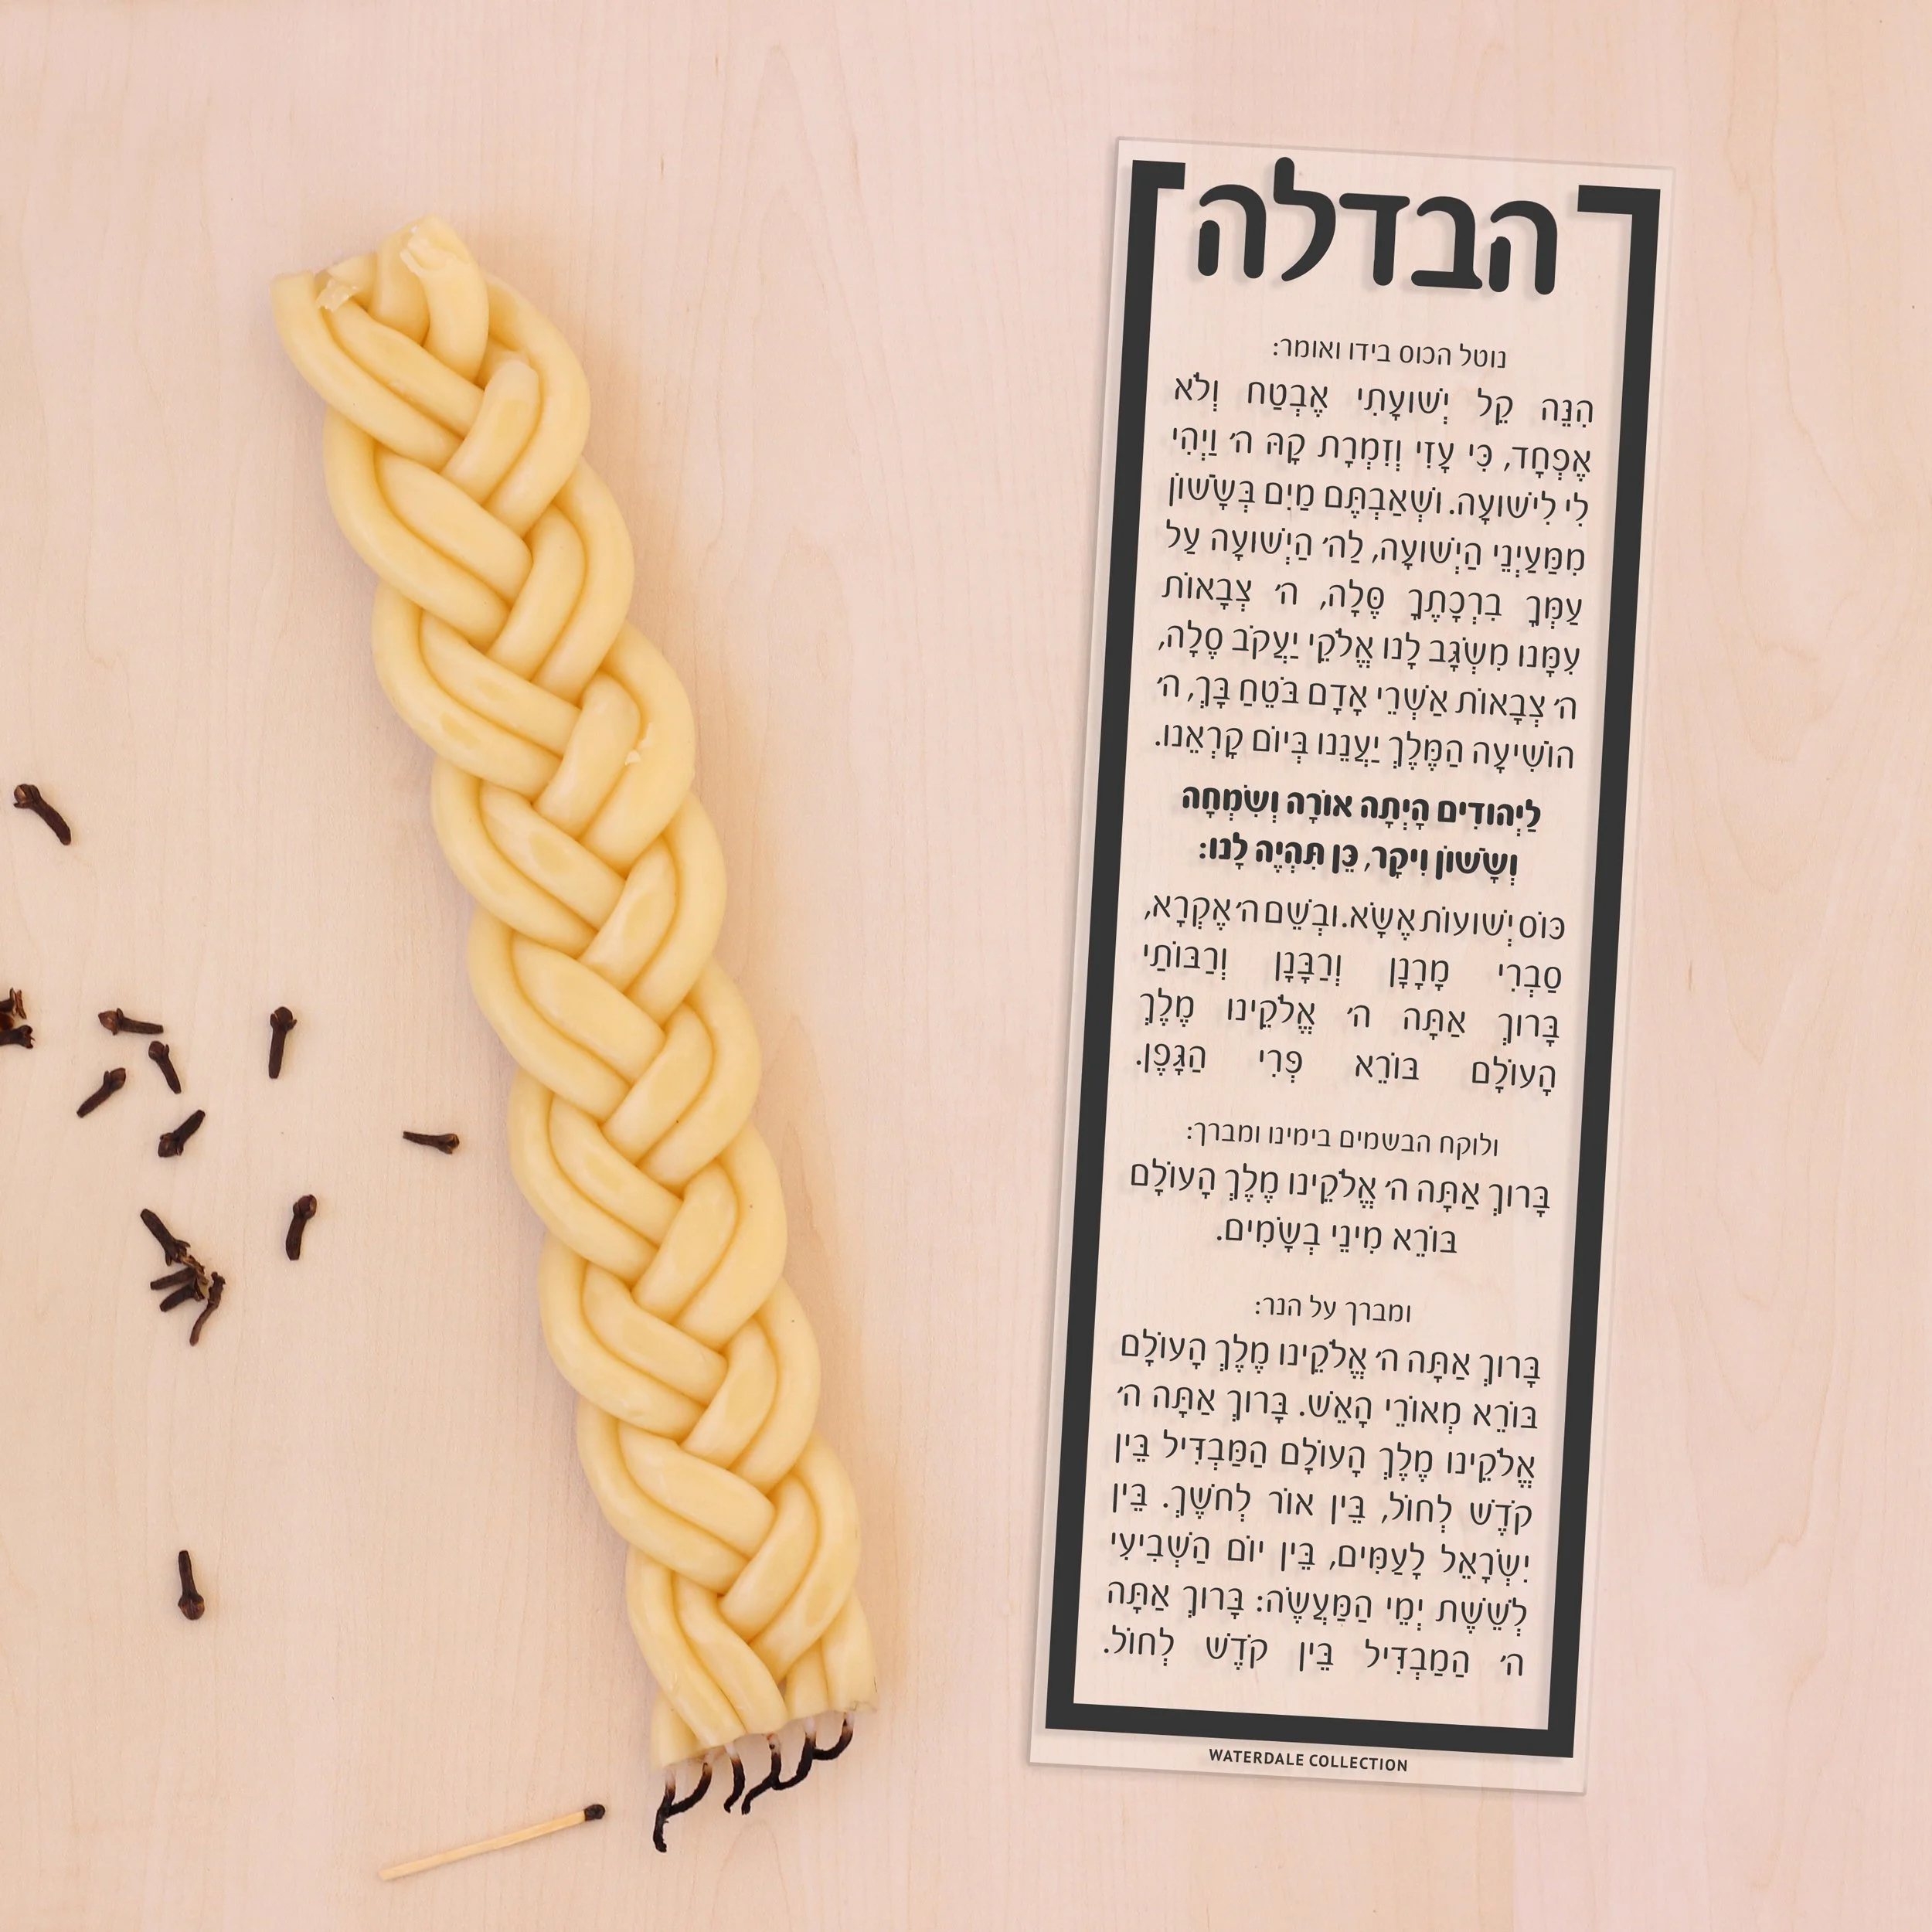 הבדלה
נוטל הכוס בידו ואומר:
הִנֵּה קֵל יְשׁוּעָתִי אֶבְטַח וְלֹא
אֶפְחָד, כִּי עָזִּי וְזִמְרָת קָהּ ה׳ וַיְהִי
לִי לִישׁוּעָה. וּשְׁאַבְתֶּם מַיִם בְּשָׂשׂוֹן
מִמַּעַיְנֵי הַיְשׁוּעָה, לַה׳ הַיְשׁוּעָה עַל
עַמְּךָ בִרְכָתֶךָ סֶּלָה, ה׳ צְבָאוֹת
עִמָּנוּ מִשְׂגָּב לָנוּ אֱלֹקֵי יַעֲקֹב סֶלָה,
ה׳ צְבָאוֹת אַשְׁרֵי אָדָם בֹּטֵחַ בָּךְ, ה׳
הוֹשִׁיעָה הַמֶּלֶךְ יַעֲנֵנוּ בְיוֹם קָרְאֵנוּ.
לַיְּהוּדִים הָיְתָה אוֹרָה וְשִׂמְחָה
וְשָׂשׂוֹן וִיקָר, כֵּן תִּהְיֶה לָּנוּ:
כּוֹס יְשׁוּעוֹת אֶשָּׂא. וּבְשֵׁם ה׳ אֶקְרָא,
סַבְרִי מָרָנָן וְרַבָּנָן וְרַבּוֹתַי
בָּרוּךְ אַתָּה ה׳ אֱלֹקֵינוּ מֶלֶךְ
הָעוֹלָם בּוֹרֵא פְּרִי הַגָּפֶן.
ולוקח הבשמים בימינו ומברך:
בָּרוּךְ אַתָּה ה׳ אֱלֹקֵינוּ מֶלֶךְ הָעוֹלָם
בּוֹרֵא מִינֵי בְשָׂמִים.
ומברך על הנר:
בָּרוּךְ אַתָּה ה׳ אֱלֹקֵינוּ מֶלֶךְ הָעוֹלָם
בּוֹרֵא מְאוֹרֵי הָאֵשׁ. בָּרוּךְ אַתָּה ה׳
אֱלֹקֵינוּ מֶלֶךְ הָעוֹלָם הַמַּבְדִּיל בֵּין
קֹדֶשׁ לְחוֹל, בֵּין אוֹר לְחֹשֶׁךְ. בֵּין
יִשְׂרָאֵל לָעַמִּים, בֵּין יוֹם הַשְּׁבִיעִי
לְשֵׁשֶׁת יְמֵי הַמַּעֲשֶׂה: בָּרוּךְ אַתָּה
ה׳ הַמַּבְדִּיל בֵּין קֹדֶשׁ לְחוֹל.
WATERDALE COLLECTION